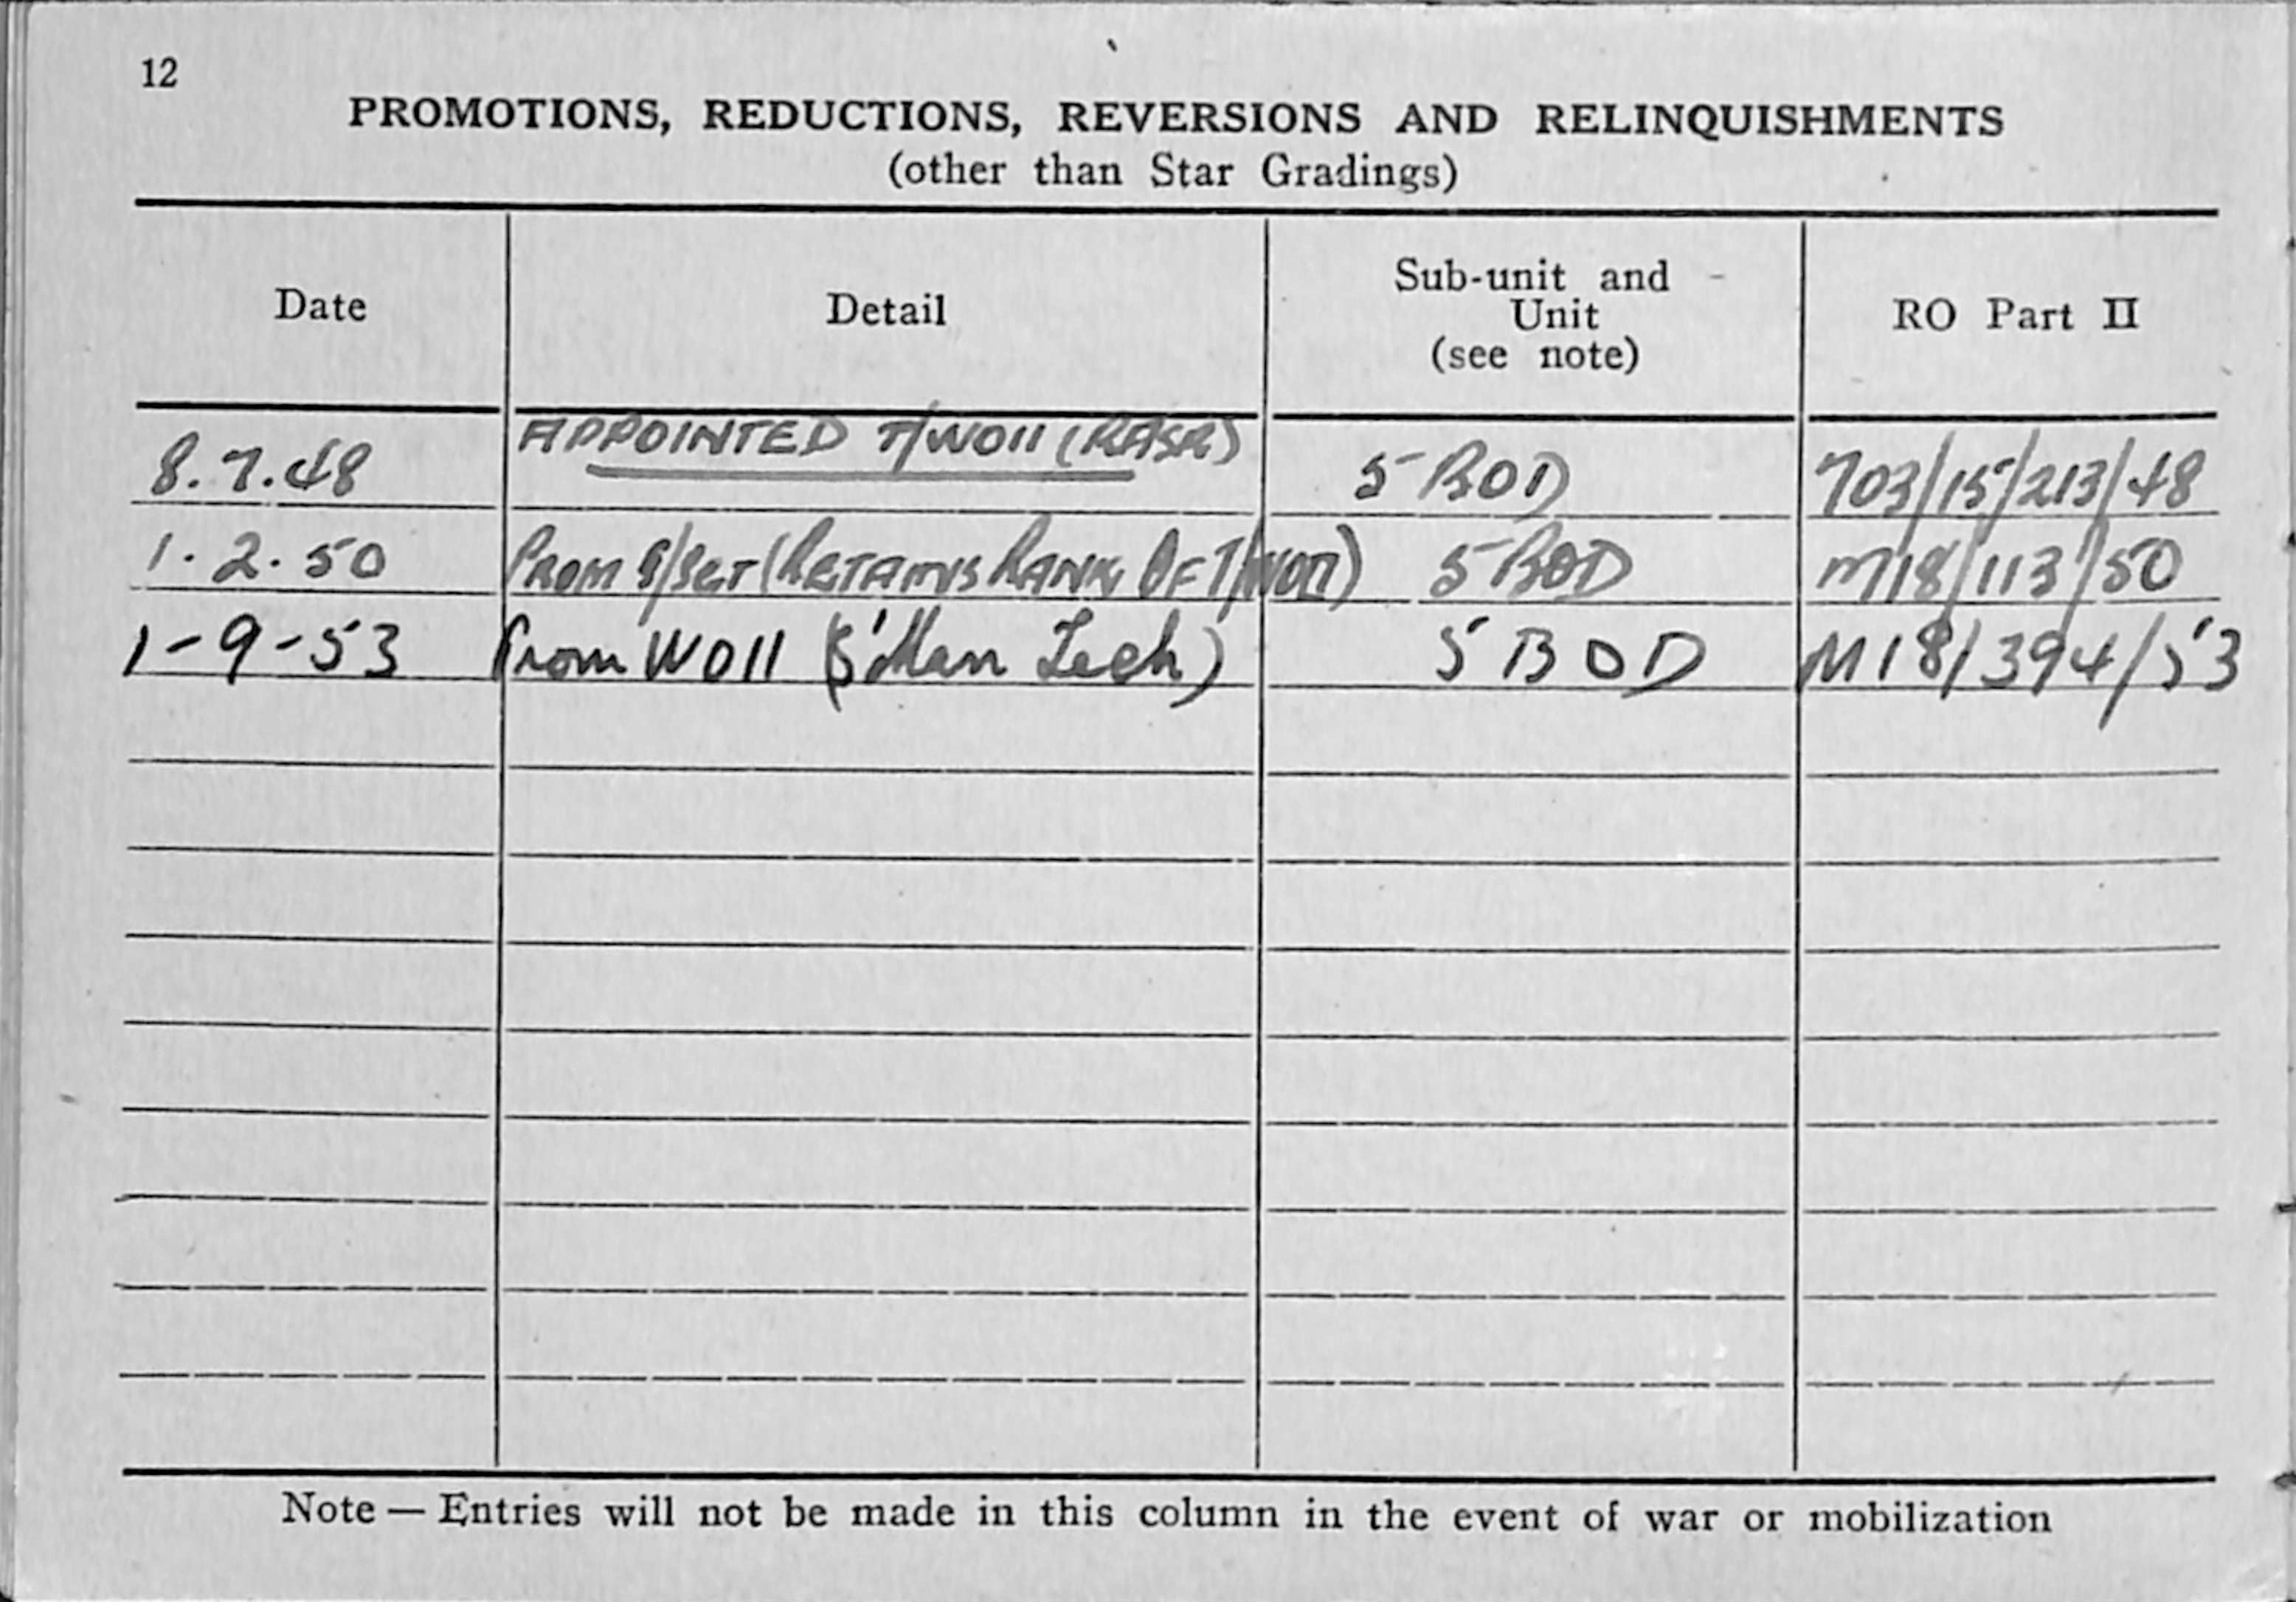 12
PROMOTIONS, REDUCTIONS, REVERSIONS AND RELINQUISHMENTS
(other than Star Gradings)
Date Detail Sub-unit and Unit (see note) RO Part II
8.7.48 APPOINTED T/WOII (RASR) 5 BOD 703/15/213/48
1.2.50 PROM S/SGT (RETAINS RANK OF T/WOII) 5 BOD M18/113/50
1-9-53 Prom WOII (S'Man Tech) 5 BOD M18/394/53
Note — Entries will not be made in this column in the event of war or mobilization